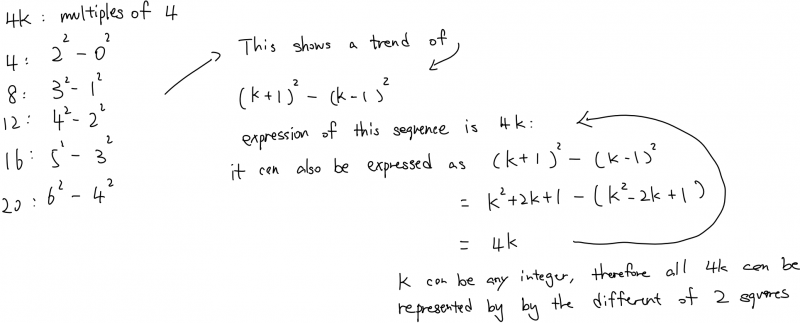 4k : multiples of 4
4 : 2² - 0²
8 : 3² - 1²
12 : 4² - 2²
16 : 5² - 3²
20 : 6² - 4²
This shows a trend of
(k+1)² - (k-1)²
expression of this sequence is 4k:
it can also be expressed as (k+1)² - (k-1)²
= k²+2k+1 - (k²-2k+1)
= 4k
k can be any integer, therefore all 4k can be
represented by by the different of 2 squares